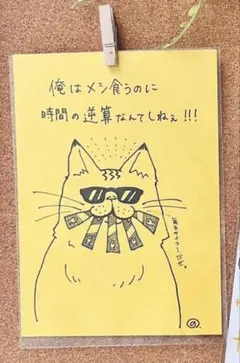 俺はメシ食うのに
時間の逆算なんてしねぇ!!!